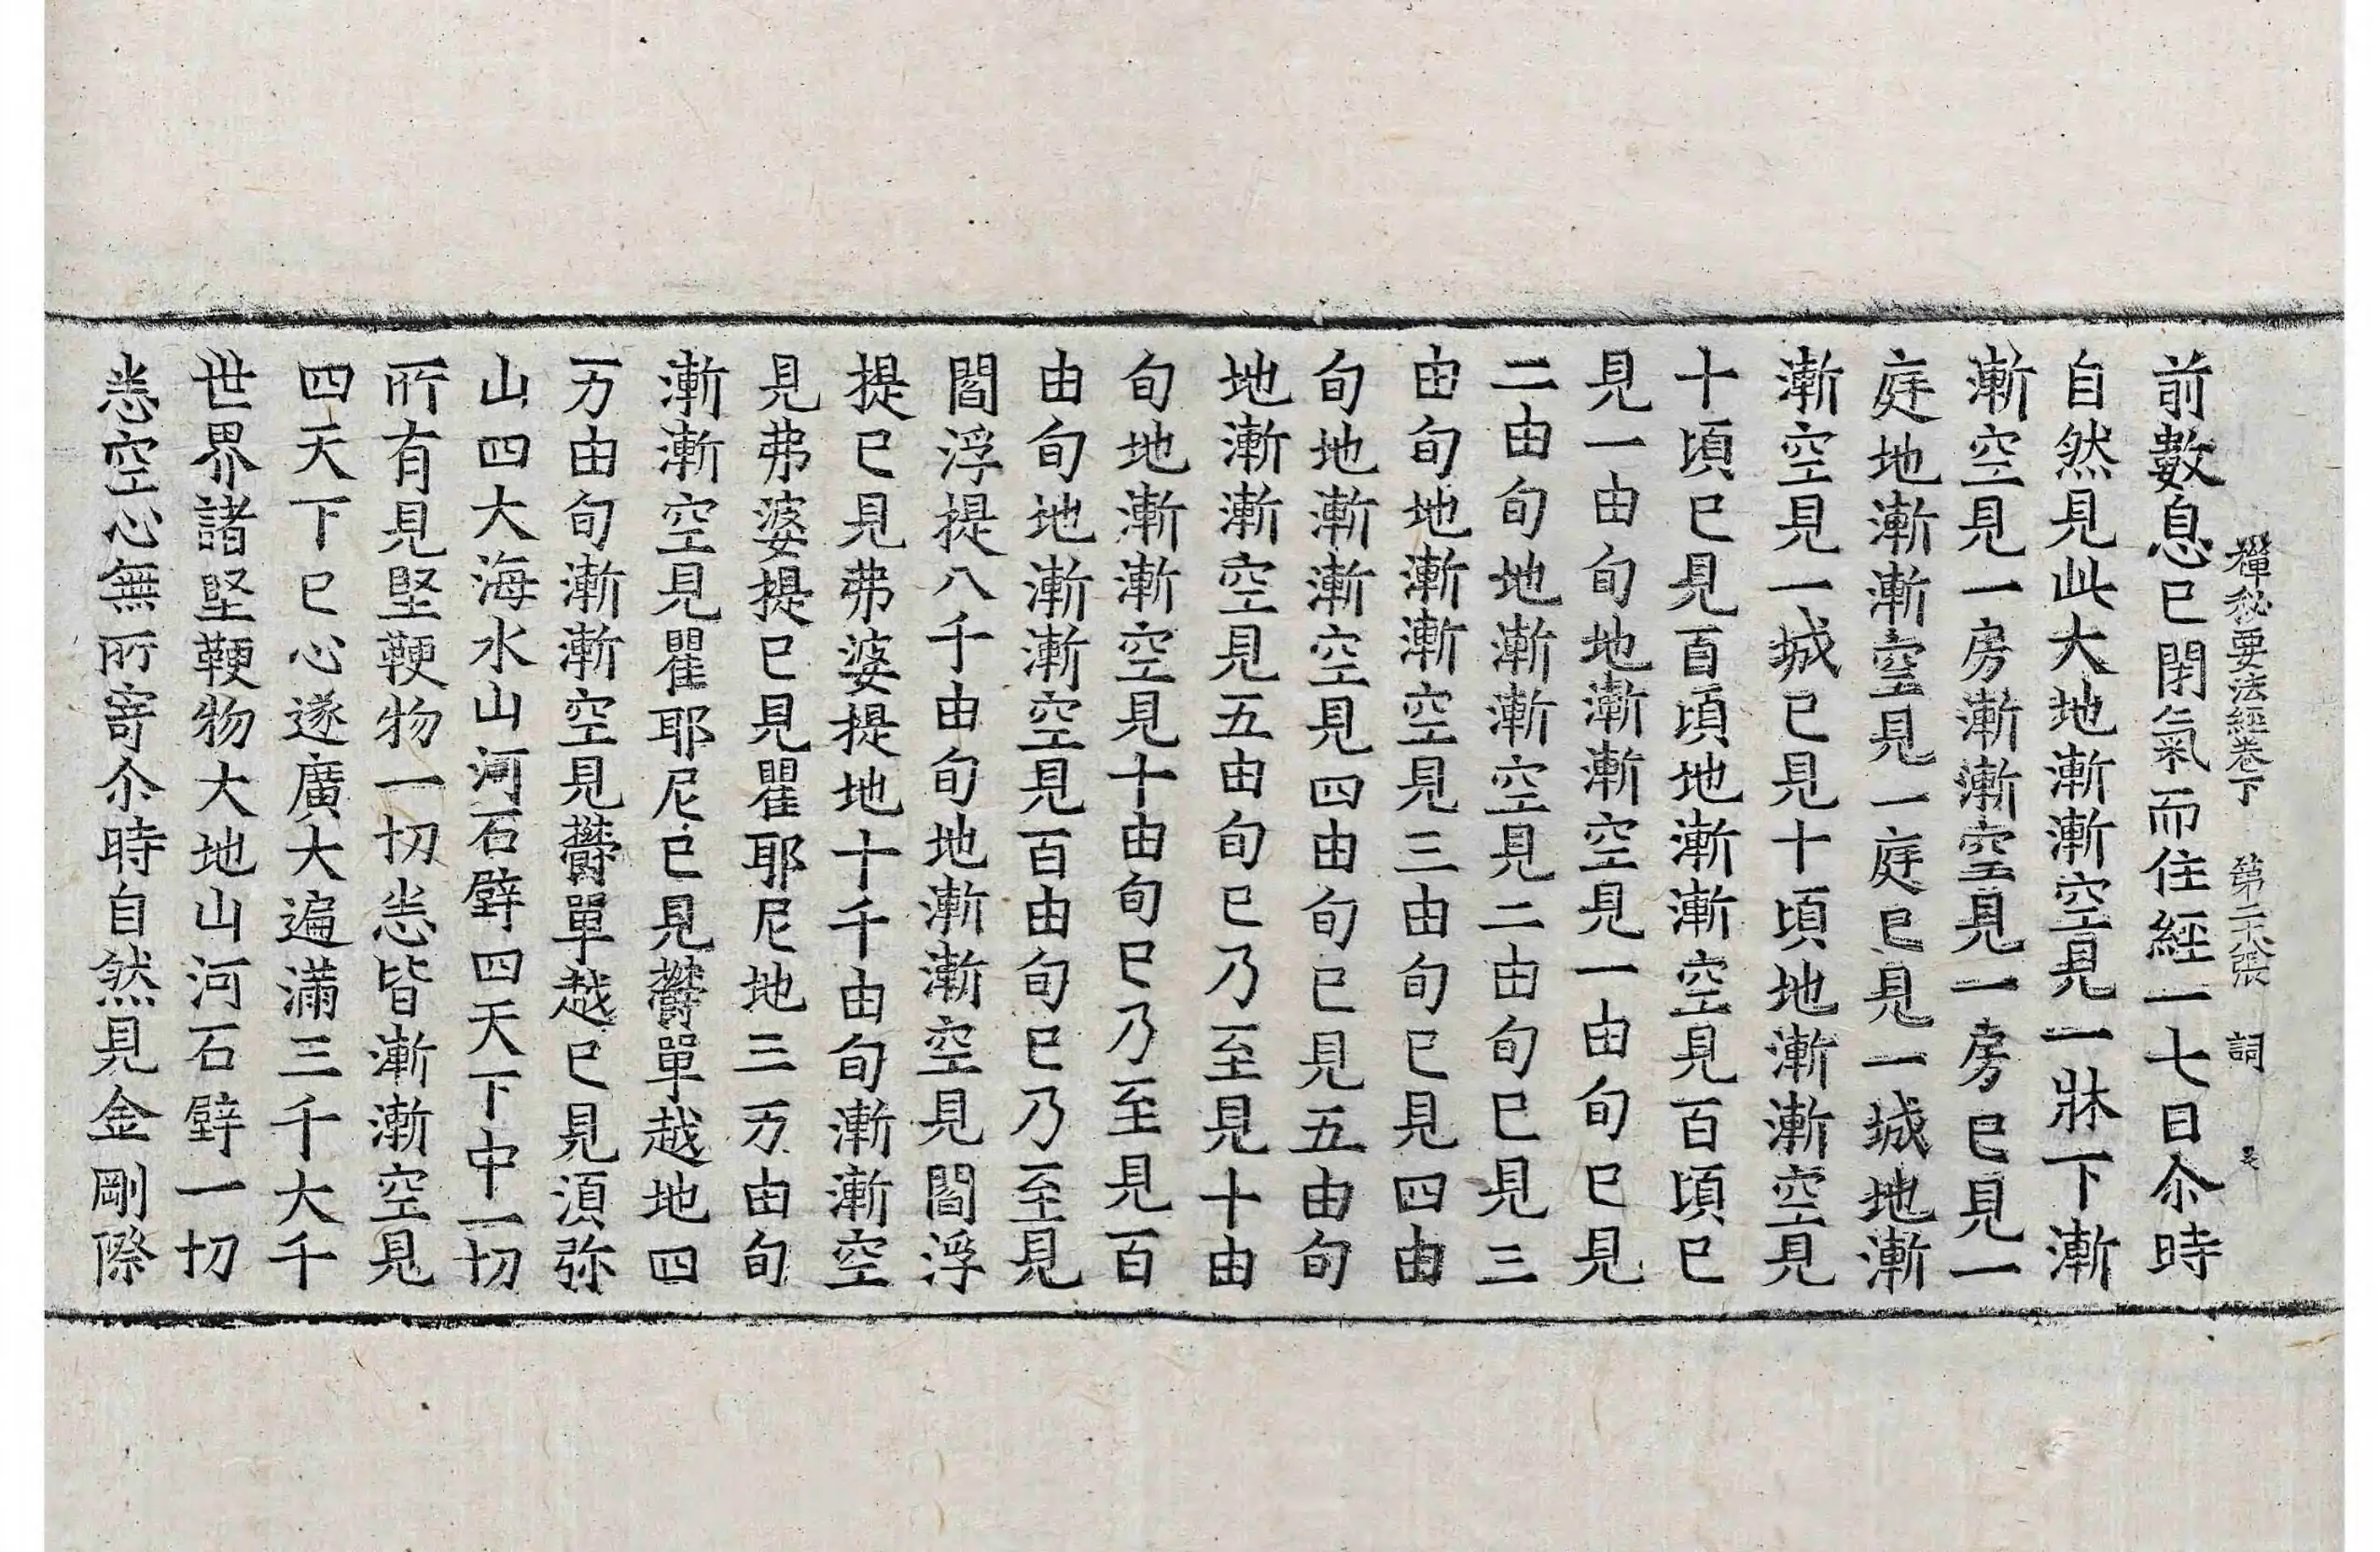 禪秘要法經卷下 第二十張 詞
前數息已閉氣而住經一七日尒時
自然見此大地漸漸空見一牀下漸
漸空見一房漸漸空見一房已見一
庭地漸漸空見一庭已見一城地漸
漸空見一城已見十頃地漸漸空見
十頃已見百頃地漸漸空見百頃已
見一由旬地漸漸空見一由旬已見
二由旬地漸漸空見二由旬已見三
由旬地漸漸空見三由旬已見四由
旬地漸漸空見四由旬已見五由旬
地漸漸空見五由旬已乃至見十由
旬地漸漸空見十由旬已乃至見百
由旬地漸漸空見百由旬已乃至見
閻浮提八千由旬地漸漸空見閻浮
提已見弗婆提地十千由旬漸漸空
見弗婆提已見瞿耶尼地三万由旬
漸漸空見瞿耶尼已見欝單越地四
万由旬漸漸空見欝單越已見湏弥
山四大海水山河石壁四天下中一切
所有見堅鞕物一切悉皆漸漸空見
四天下已心遂廣大遍滿三千大千
世界諸堅鞕物大地山河石壁一切
悉空心無所寄尒時自然見金剛際